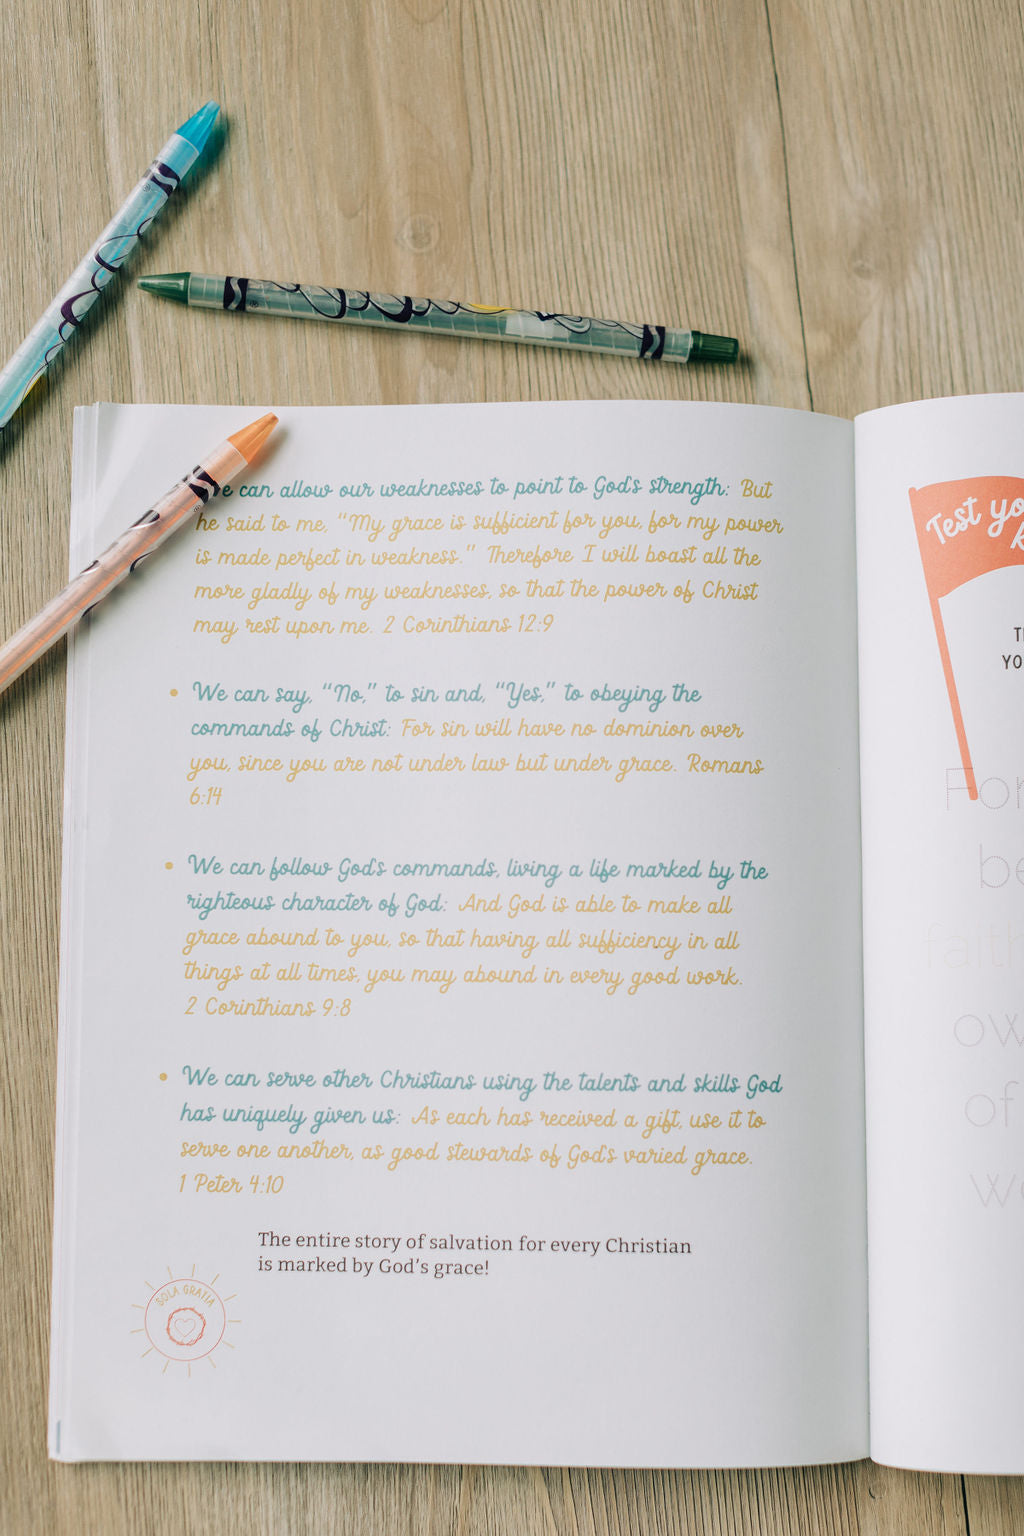 can allow our weaknesses to point to God's strength: But
he said to me, “My grace is sufficient for you, for my power
is made perfect in weakness.” Therefore I will boast all the
more gladly of my weaknesses, so that the power of Christ
may rest upon me. 2 Corinthians 12:9
• We can say, “No,” to sin and, “Yes,” to obeying the
commands of Christ: For sin will have no dominion over
you, since you are not under law but under grace. Romans
6:14
• We can follow God's commands, living a life marked by the
righteous character of God: And God is able to make all
grace abound to you, so that having all sufficiency in all
things at all times, you may abound in every good work.
2 Corinthians 9:8
• We can serve other Christians using the talents and skills God
has uniquely given us: As each has received a gift, use it to
serve one another, as good stewards of God's varied grace.
1 Peter 4:10
The entire story of salvation for every Christian
is marked by God's grace!
SOLA GRATIA
Test
of